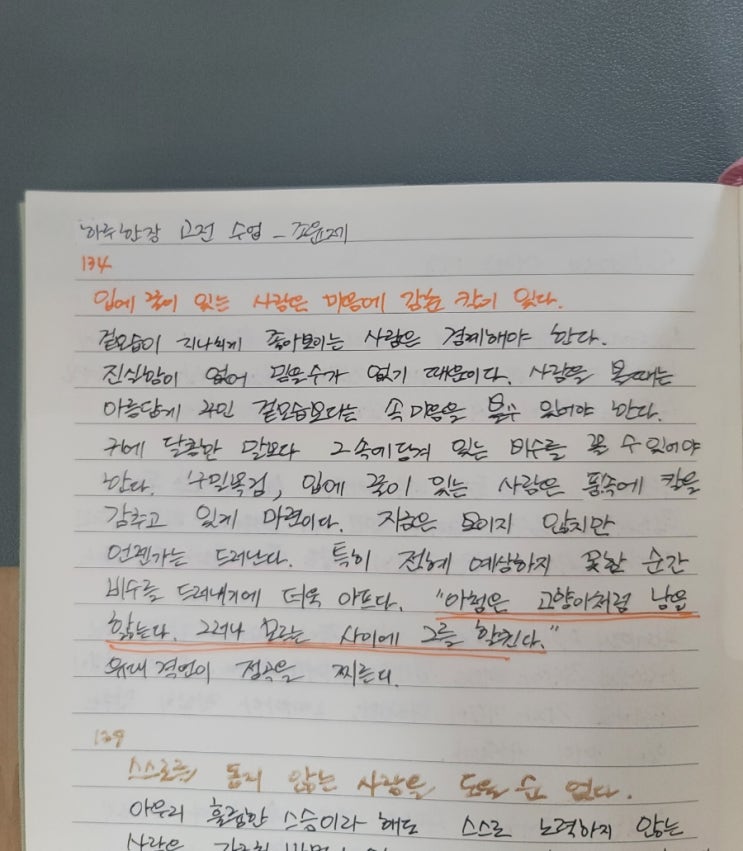 '하루 한장 고전 수업 - 조윤제
134
입에 꿀이 있는 사람은 마음에 감춘 칼이 있다.
겉모습이 지나치게 좋아보이는 사람은 경계해야 한다.
진실함이 없어 믿을수가 없기 때문이다. 사람을 볼때는
아름답게 꾸민 겉모습보다는 속 마음을 볼수 있어야 한다.
귀에 달콤한 말보다 그 속에 담겨 있는 비수를 볼 수 있어야
한다. '구밀복검, 입에 꿀이 있는 사람은 품속에 칼을
감추고 있게 마련이다. 지금은 보이지 않지만
언젠가는 드러난다. 특히 전혀 예상하지 못한 순간
비수를 드러내기에 더욱 아프다. "아첨은 고양이처럼 남을
핥는다. 그러나 모르는 사이에 그를 할퀸다."
유대 격언이 정곡을 찌른다.
139
스스로 돕지 않는 사람을 도울 순 없다.
아무리 훌륭한 스승이라 해도 스스로 노력하지 않는
사람은